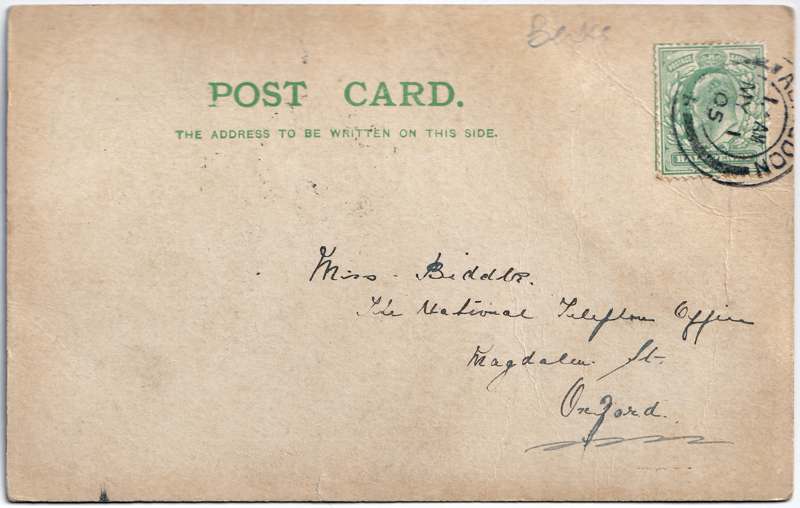 Berks
POST CARD.
THE ADDRESS TO BE WRITTEN ON THIS SIDE.
MY 1
05
AM
Miss. Biddle.
The National Telephone Office
Magdalen. St.
Oxford.